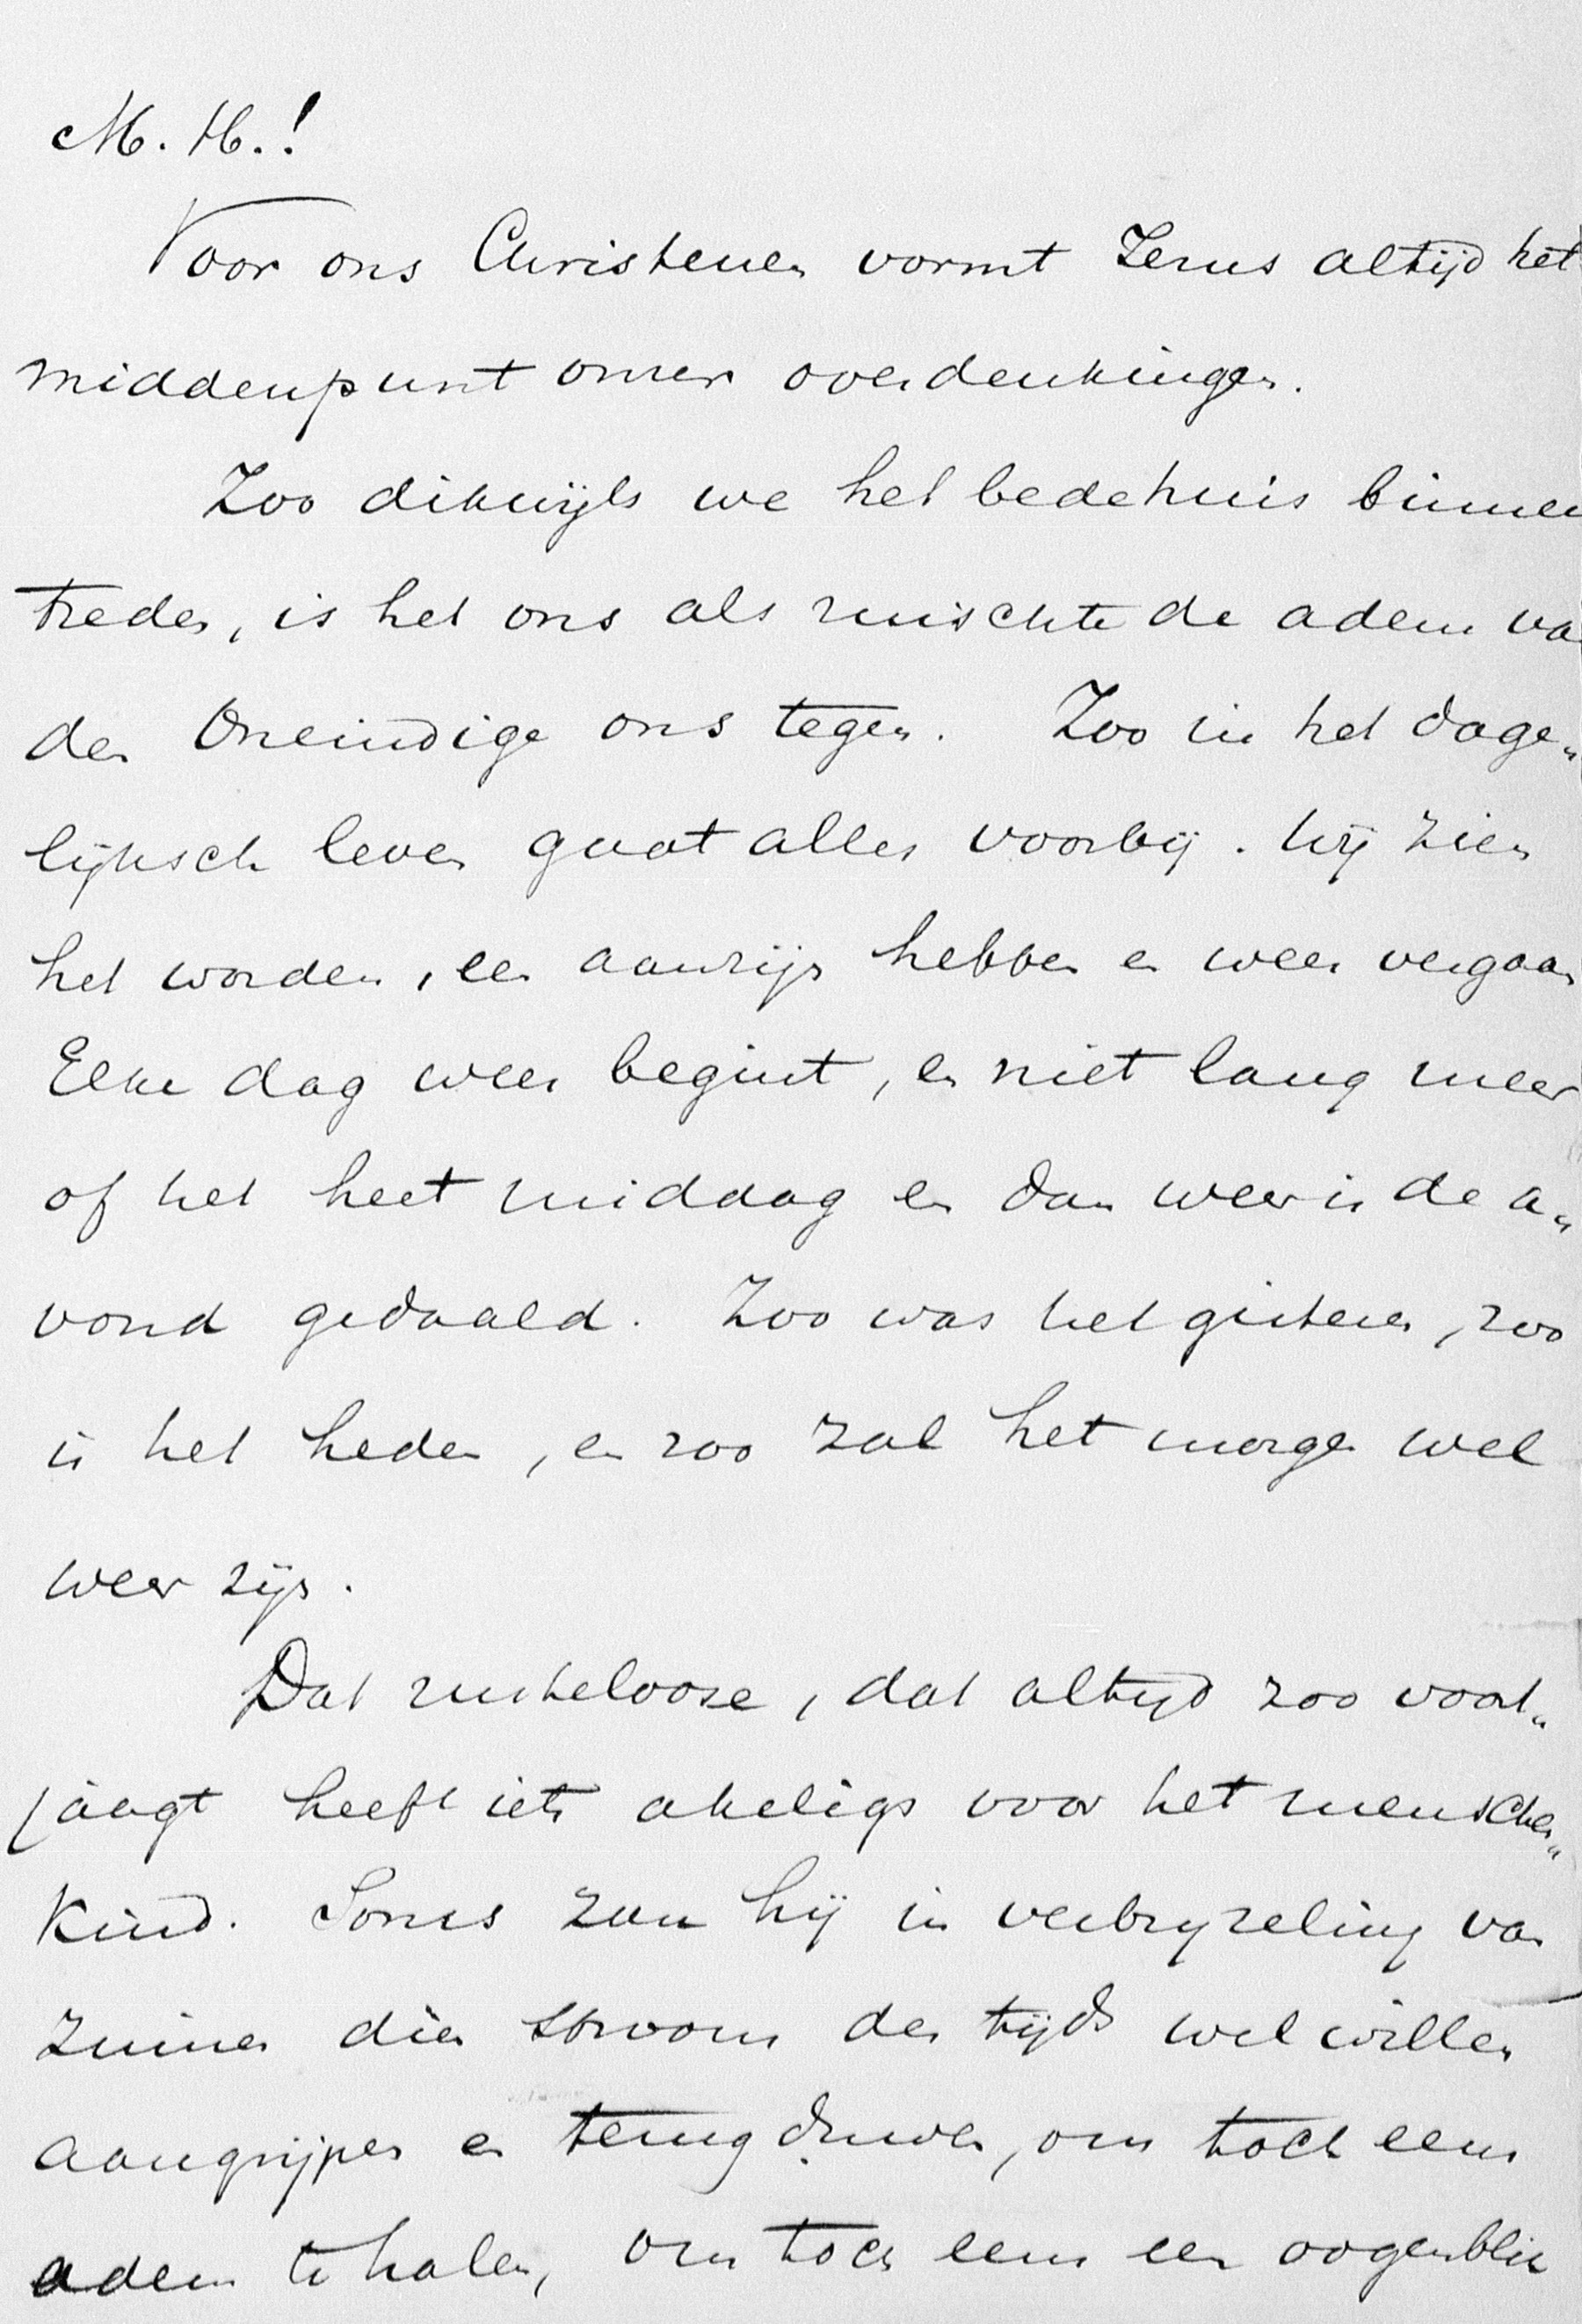 M. H.!
Voor ons Christenen vormt Jezus altijd het
middenpunt onzer overdenkingen.
Zoo dikwijls we het bedehuis binnen
treden, is het ons als ruischte de adem va
den Oneindige ons tegen. Zoo in het dage„
lijksch leven gaat alles voorbij. Wij zien
het worden, een aanzijn hebben en weer vergaan
Elke dag weer begint, en niet lang meer
of het heet middag en dan weer is de a„
vond gedaald. Zoo was het gisteren, zoo
is het heden, en zoo zal het morgen wel
weer zijn.
Dat rusteloose, dat altijd zoo voort„
jaagt heeft iets akeligs voor het menschen„
kind. Soms zou hij in verbryzeling van
zinnen dien stroom des tijds wel willen
aangrijpen en terugduwen, om toch eens
adem te halen, om toch eens een oogenblik